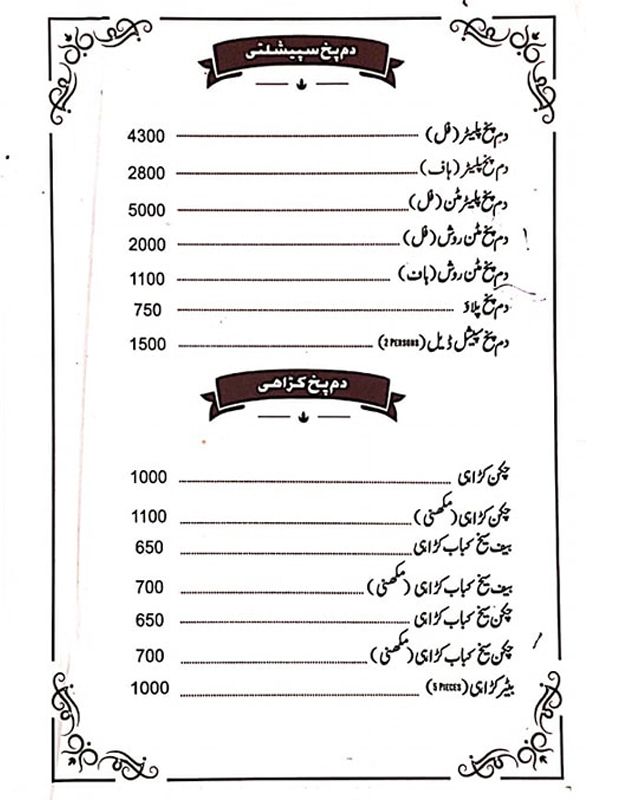 دم پخ سپیشلٹی
دم پخ پلیٹر (فل) 4300
دم پخ پلیٹر (ہاف) 2800
دم پخ پلیٹر مٹن (فل) 5000
دم پخ مٹن روش (فل) 2000
دم پخ مٹن روش (ہاف) 1100
دم پخ پلاؤ 750
دم پخ سپیشل ڈیل (2 PERSONS) 1500
دم پخ کڑاھی
چکن کڑاہی 1000
چکن کڑاہی (مکھنی) 1100
بیف سیخ کباب کڑاہی 650
بیف سیخ کباب کڑاہی (مکھنی) 700
چکن سیخ کباب کڑاہی 650
چکن سیخ کباب کڑاہی (مکھنی) 700
بٹیر کڑاہی (5 PIECES) 1000